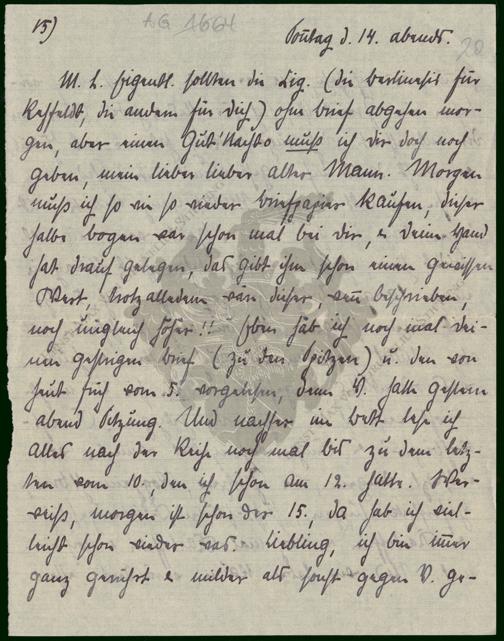 15)
AG 1664
20
Sontag d. 14. abends.
M. L. Eigentl. sollten die Zig. (die berlinesis für
Rehfeldt, die andern für dich) ohn brief abgehen mor-
gen, aber einen Gut'Nacht muß ich dir doch noch
geben, mein lieber lieber alter Mann. Morgen
muß ich so wie so wieder briefpapier kaufen, dieser
halbe bogen war schon mal bei dir, & deine Hand
hat drauf gelegen, das gibt ihm schon einen gewissen
Wert, trotzalledem wär dieser, wenn beschrieben
noch ungleich höher!! Eben hab ich noch mal dei-
nen gestrigen brief (zu den Spitzen) u. den von
heut früh vom 5. vorgelesen, denn V. hatte gestern
abend Sitzung. Und nachher im bett lese ich
alles nach der Reihe noch mal bis zu dem letz-
ten vom 10. den ich schon am 12. hatte. Wer
weiß, morgen ist schon der 15., da hab ich viel-
leicht schon wieder was. Liebling, ich bin immer
ganz gerührt & milder als sonst gegen V. ge-